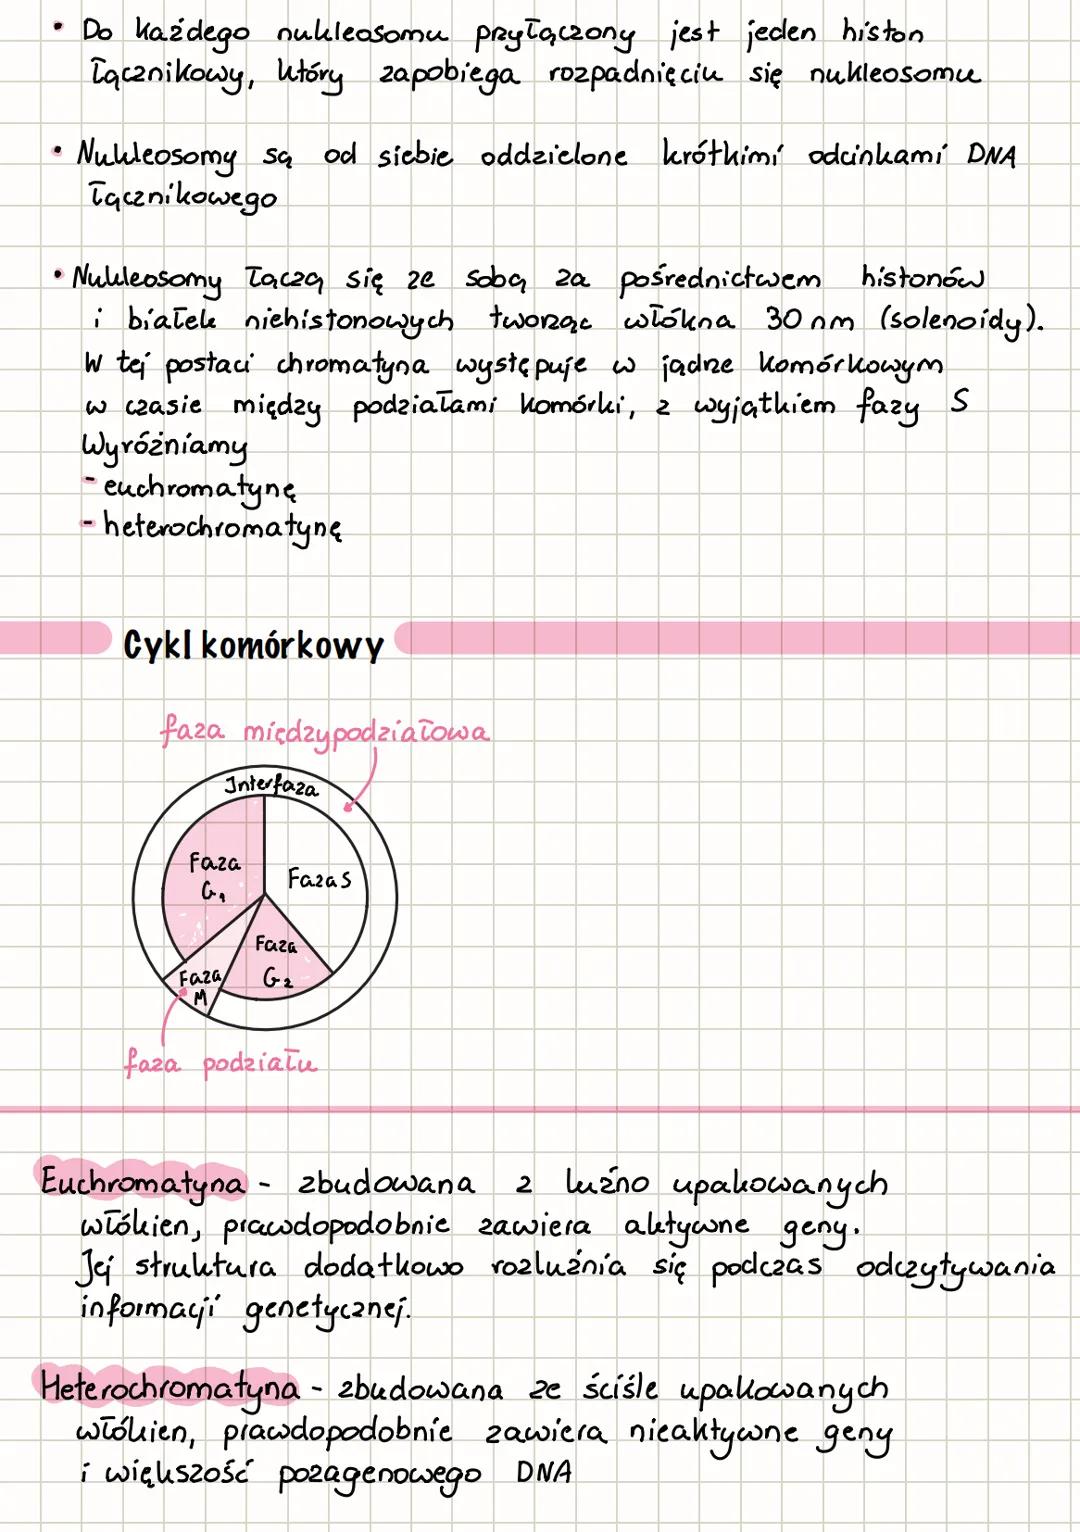 • Do każdego nukleosomu przyłączony jest jeden histon
łącznikowy, który zapobiega rozpadnięciu się nukleosomu
• Nukleosomy są od siebie oddzielone krótkimi odcinkami DNA
łącznikowego
• Nukleosomy łączą się ze sobą za pośrednictwem histonów
i białek niehistonowych tworząc włókna 30 nm (solenoidy).
W tej postaci chromatyna występuje w jądrze komórkowym
w czasie między podziałami komórki, z wyjątkiem fazy S
Wyróżniamy
- euchromatynę
- heterochromatynę
Cykl komórkowy
faza międzypodziałowa
Interfaza
Faza
G₁
Faza S
Faza
G₂
Faza
M
faza podziału
Euchromatyna - zbudowana z luźno upakowanych
włókien, prawdopodobnie zawiera aktywne geny.
Jej struktura dodatkowo rozluźnia się podczas odczytywania
informacji genetycznej.
Heterochromatyna - zbudowana ze ściśle upakowanych
włókien, prawdopodobnie zawiera nieaktywne geny
i większość pozagenowego DNA